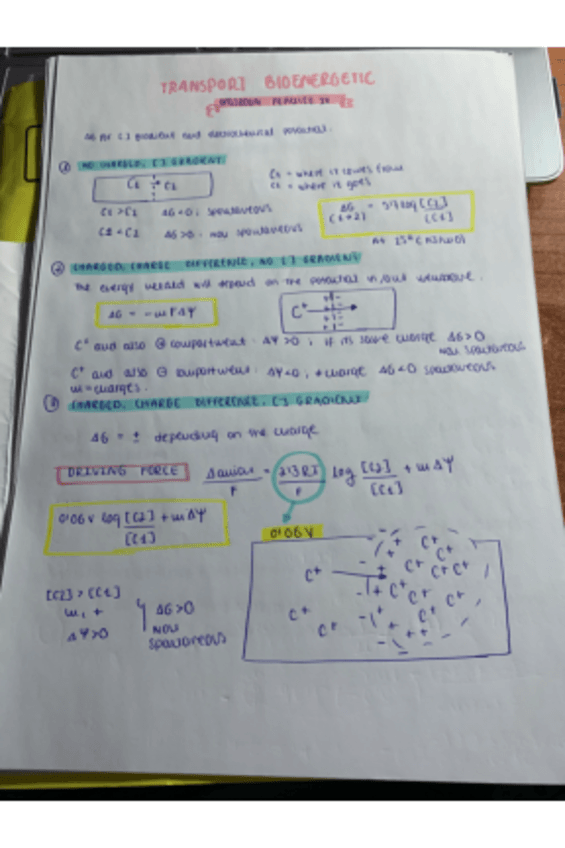 TRANSPORT BIOENERGETIC
ΔG for [ ] gradient and electrochemical potential.
NO CHARGED, [ ] GRADIENT
C1 C2
C1 = where it comes from
C2 = where it goes
C1 > C2 ΔG<0, spontaneous
C1 < C2 ΔG>0, non spontaneous
ΔG = 5'7 log [C2]
(1→2) [C1]
At 25°C
CHARGED, CHARGE DIFFERENCE, NO [ ] GRADIENT
The energy needed will depend on the potential in/out membrane.
ΔG = -m F ΔΨ
C+
C+ and also ⊕ compartment: ΔΨ>0, if its same charge ΔG>0
non spontaneous
C+ and also ⊖ compartment: ΔΨ<0, ≠ charge ΔG<0 spontaneous
m = charges.
③ CHARGED, CHARGE DIFFERENCE, [ ] GRADIENT
ΔG = ± depending on the charge
DRIVING FORCE
= 2'3RT log [C2] + m ΔΨ
F F [C1]
0'06V log [C2] + m ΔΨ
[C1]
0'06V
[C2] > [C1]
m, +
ΔΨ>0
ΔG>0
non
spontaneous
C+ C+ C+ C+ C+ C+ C+ C+ C+ C+ C+ C+